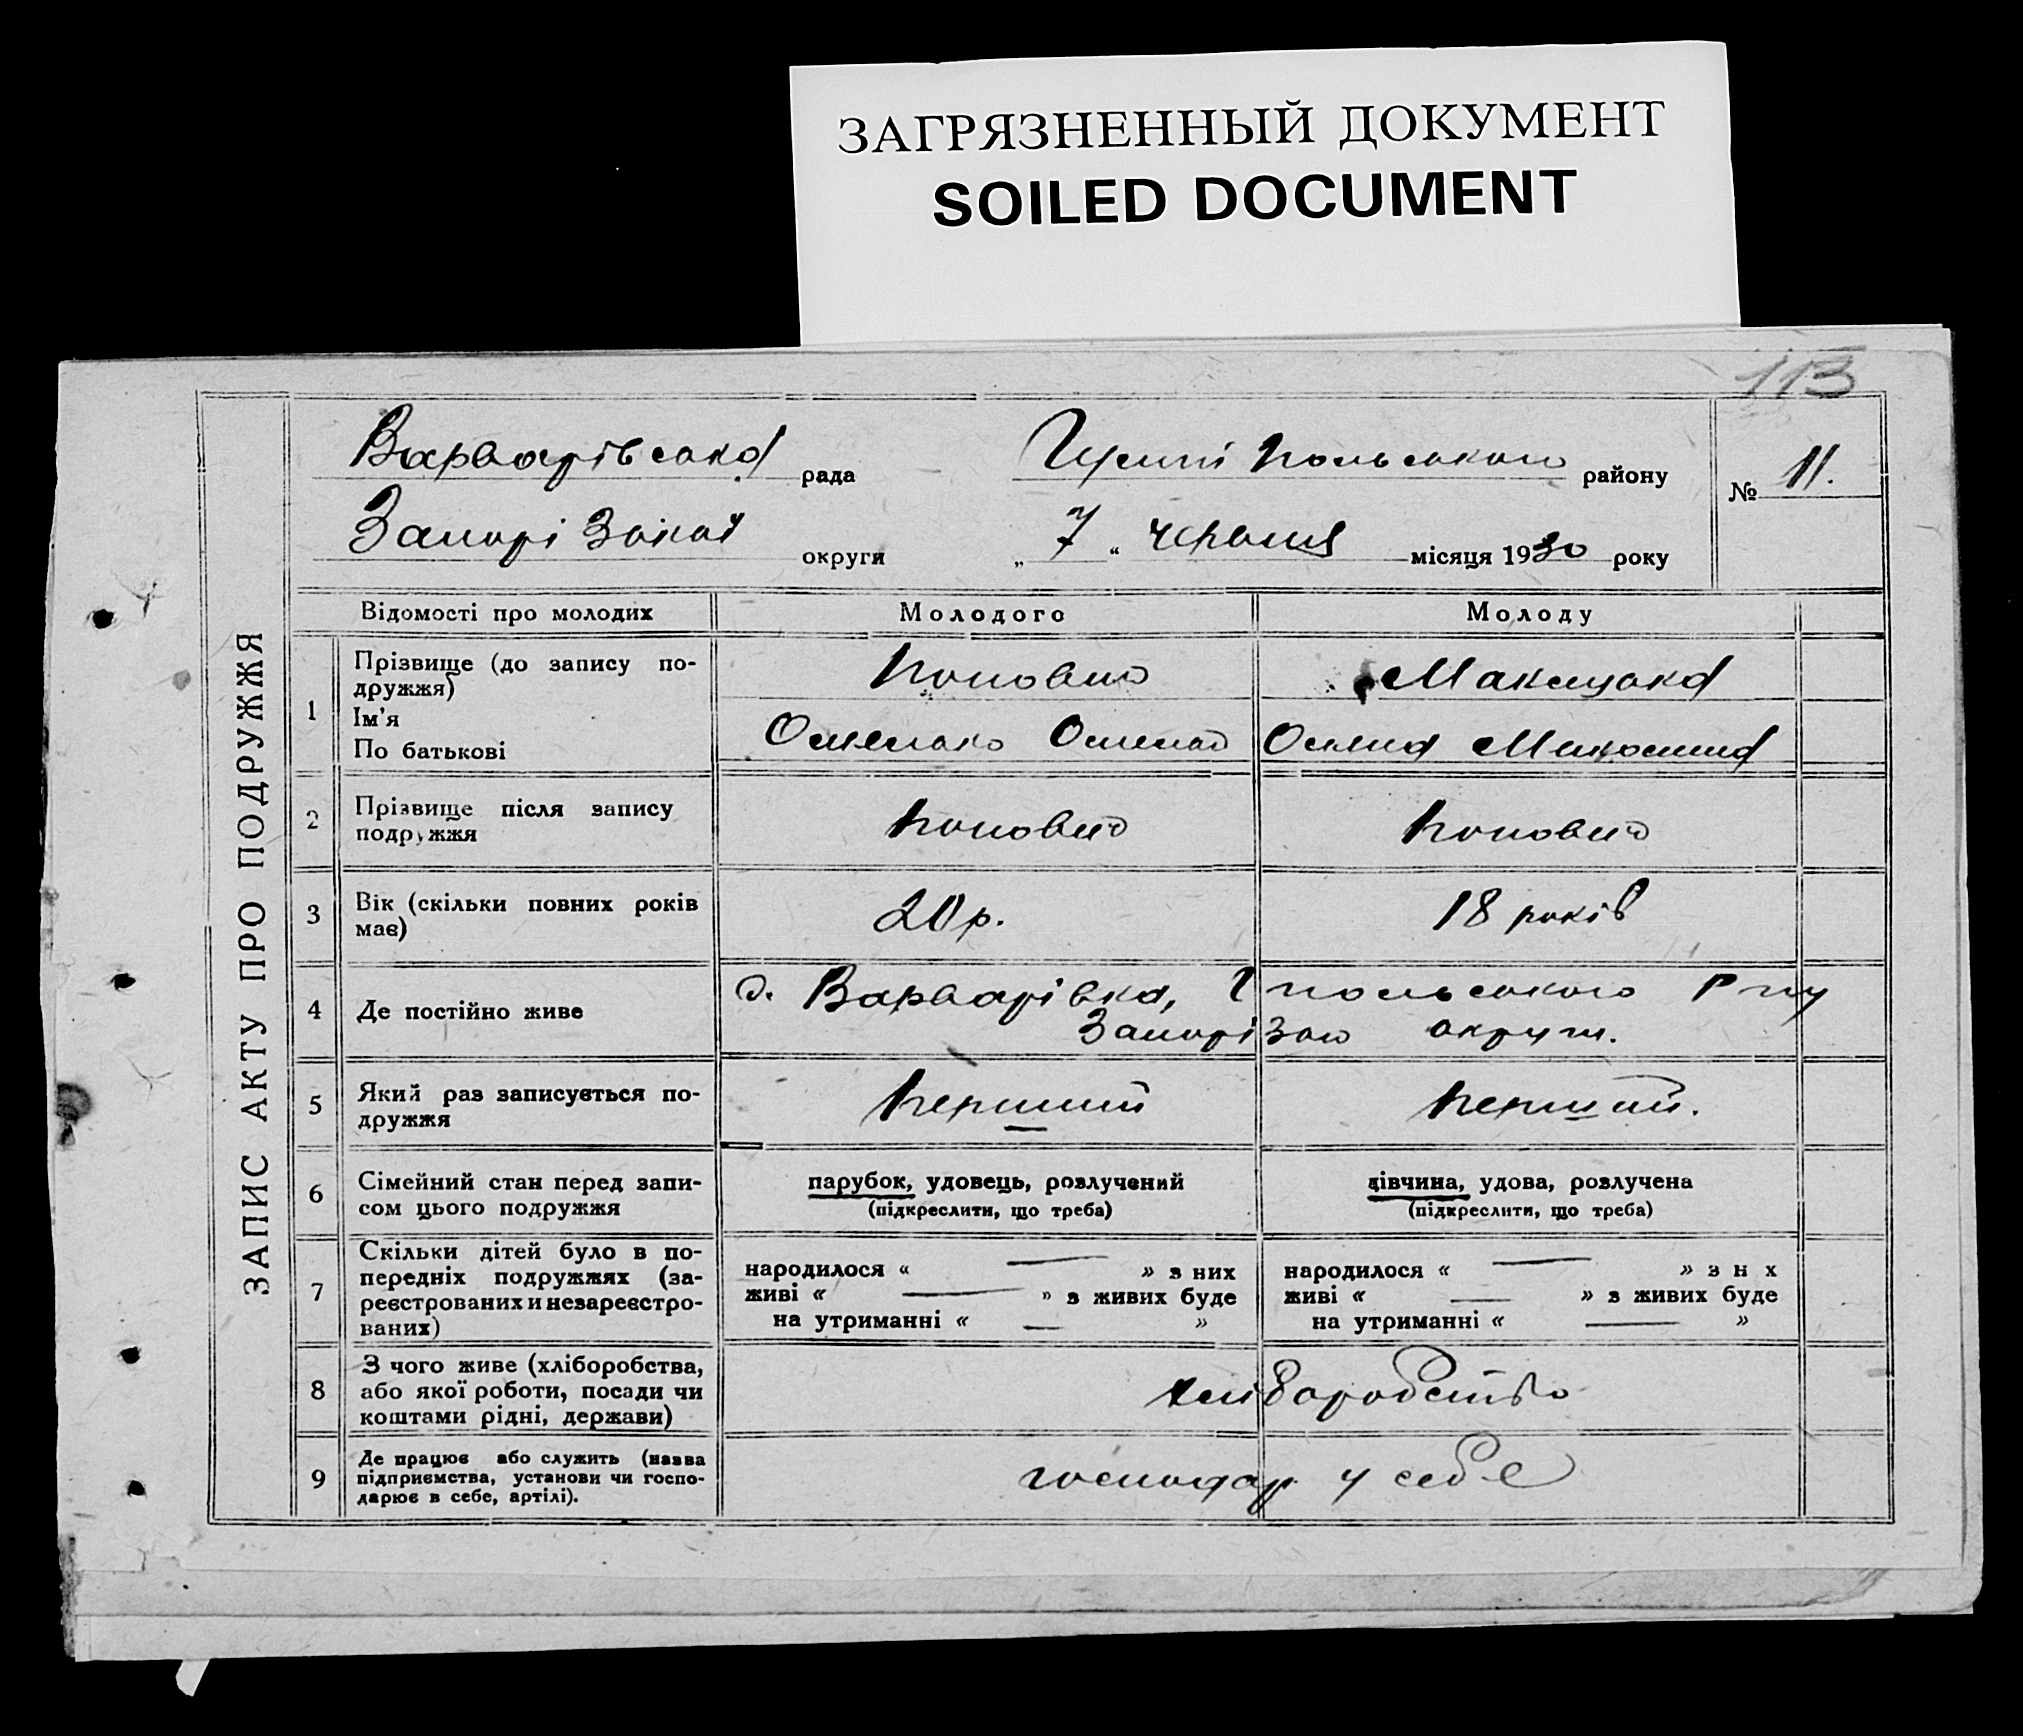 ЗАГРЯЗНЕННЫЙ ДОКУМЕНТ
SOILED DOCUMENT
113
ЗАПИС АКТУ ПРО ПОДРУЖЖЯ
Варварівська рада Гуляйпольського району
№ 11.
Запорізької округи „ 7 “ червня місяця 1930 року
Відомості про молодих Молодого Молоду
1 Прізвище (до запису по-
дружжя)
Ім'я
По батькові
Поповий
Омелько Омелов
2 Прізвище після запису
подружжя
Поповий Поповий
3 Вік (скільки повних років
має)
20 р. 18 років
4 Де постійно живе
с. Варварівка, Гпольського Р ну
Запорізької округи.
5 Який раз записується по-
дружжя
перший перший.
6 Сімейний стан перед запи-
сом цього подружжя
парубок, удовець, розлучений
(підкреслити, що треба)
дівчина, удова, розлучена
(підкреслити, що треба)
7 Скільки дітей було в по-
передніх подружжях (за-
реєстрованих и незареєстро-
ваних)
народилося « — » з них
живі « — » з живих буде
на утриманні « — »
народилося « — » з н х
живі « — » з живих буде
на утриманні « — »
8 З чого живе (хліборобства,
або якої роботи, посади чи
коштами рідні, держави)
хліборобство
9 Де працює або служить (назва
підприємства, установи чи госпо-
дарює в себе, артілі).
господар у себе